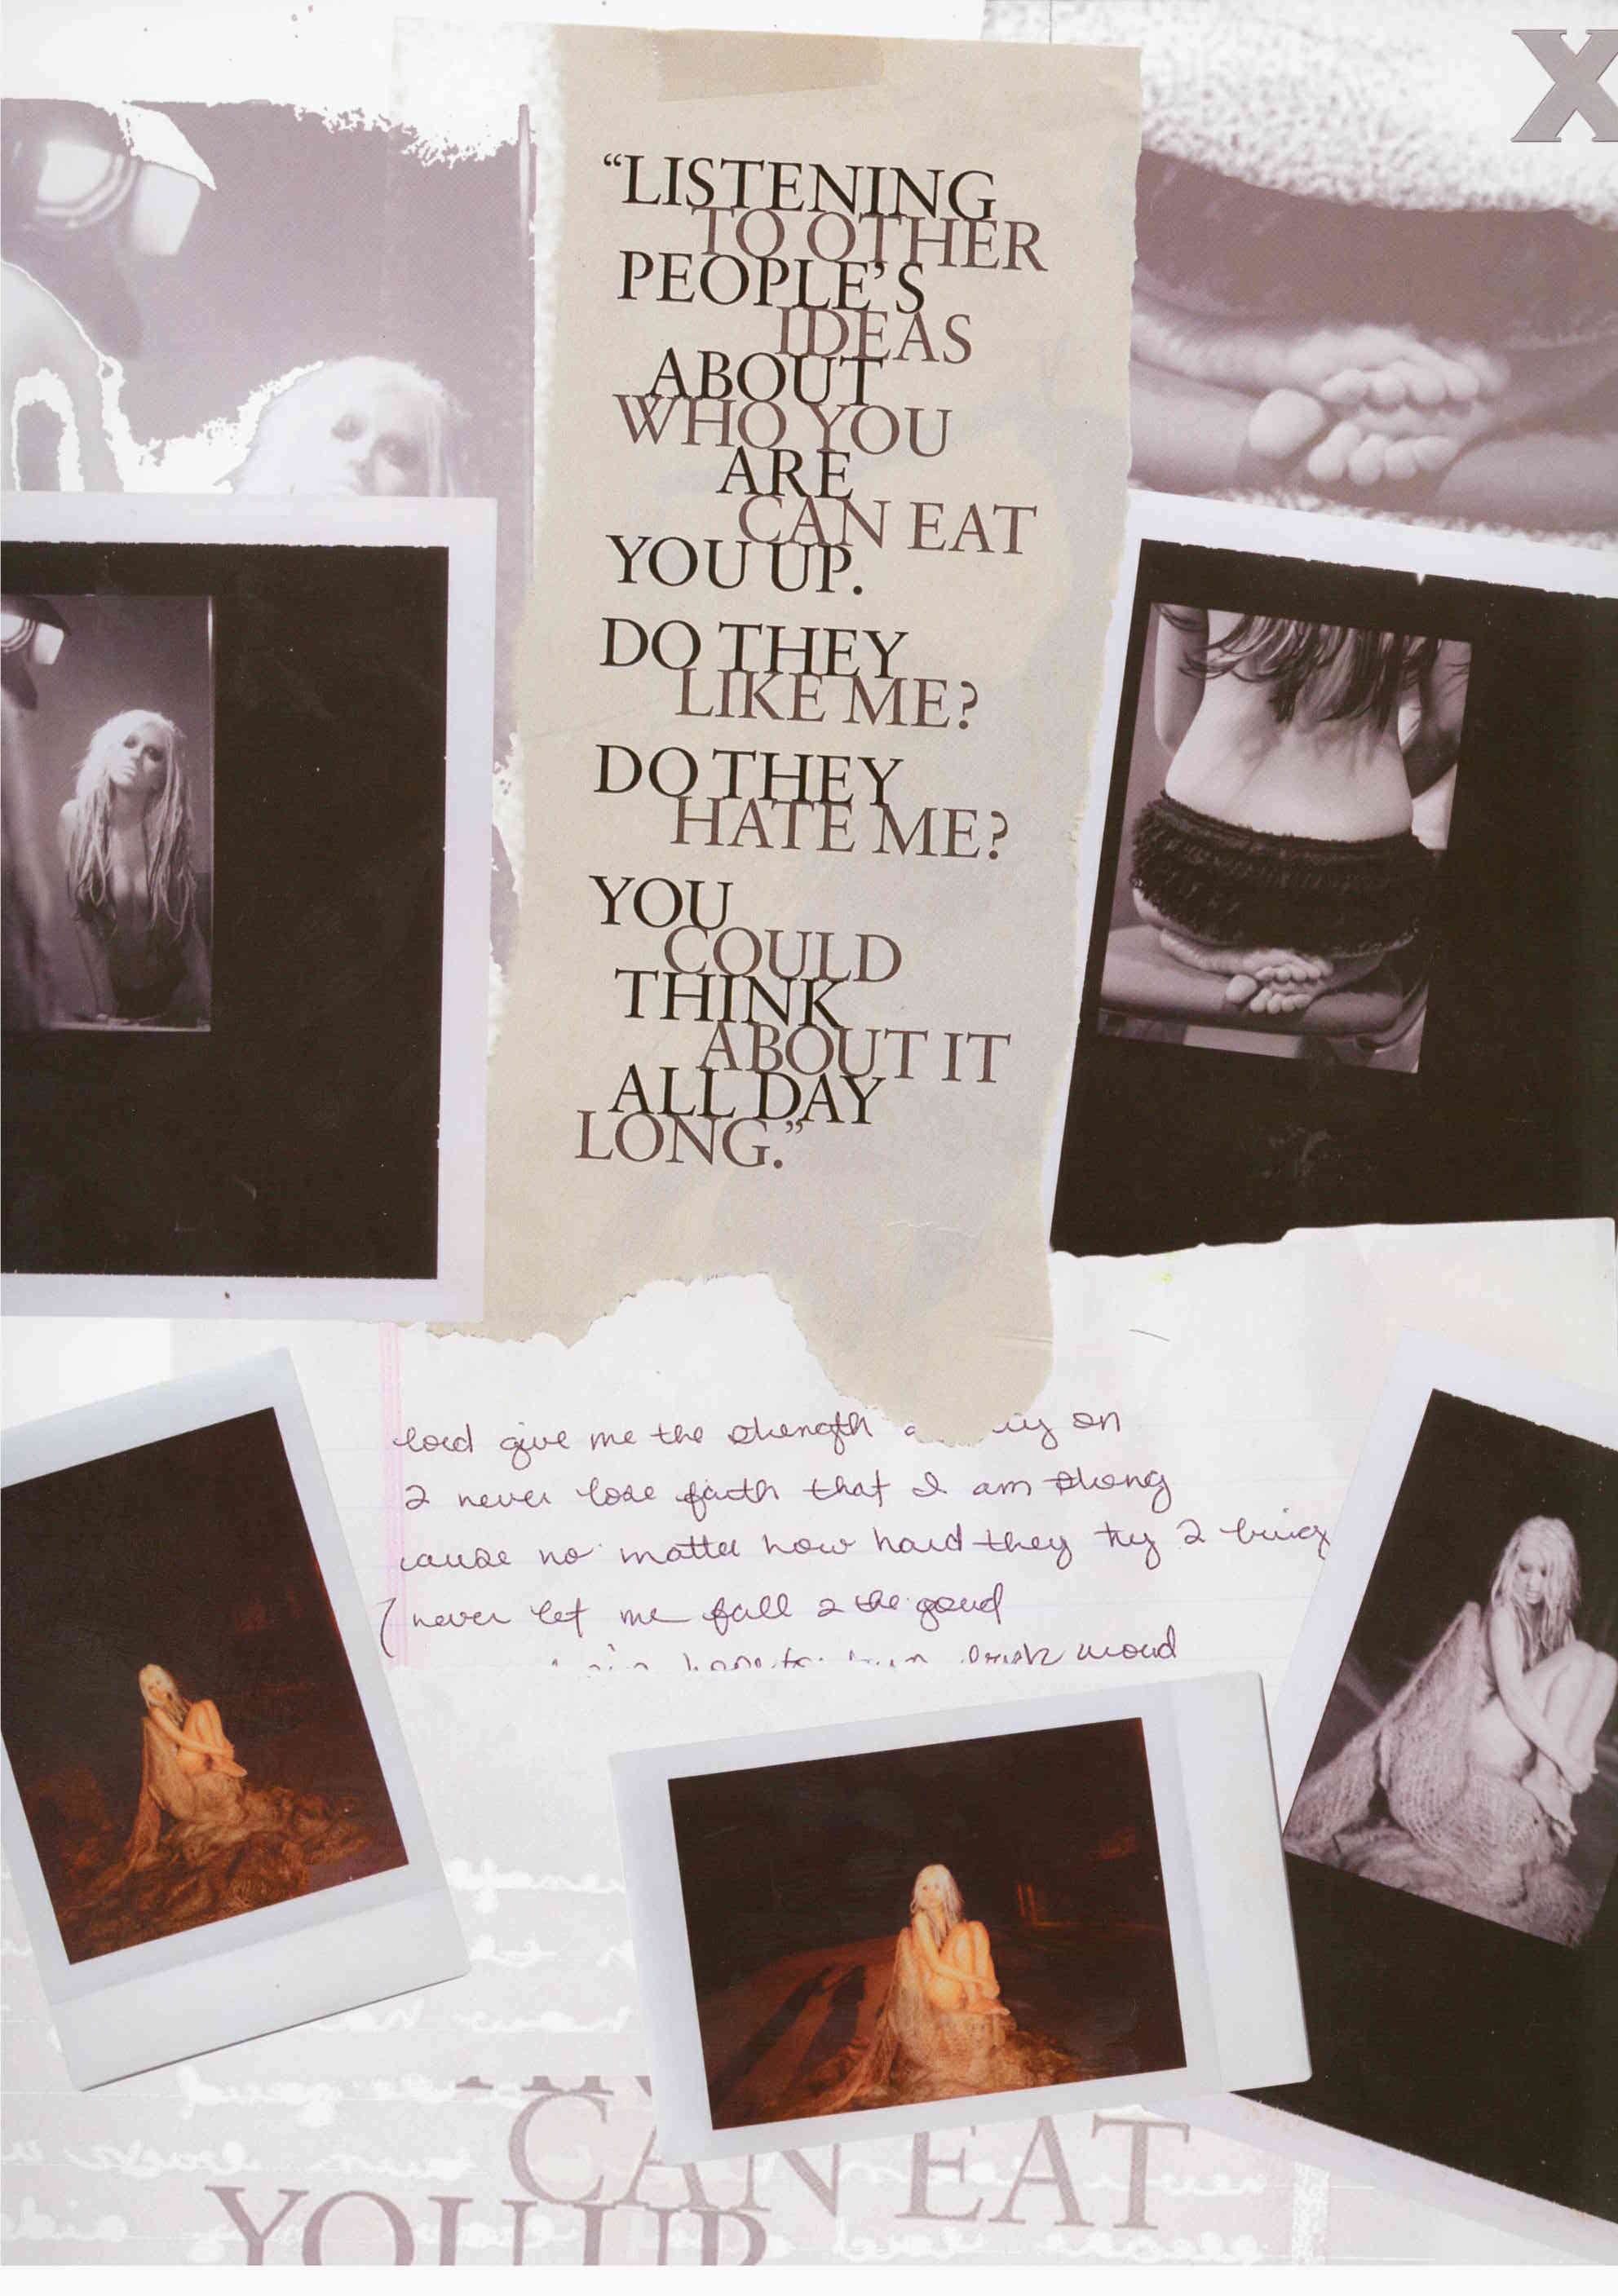 X
“LISTENING
TO OTHER
PEOPLE’S
IDEAS
ABOUT
WHO YOU
ARE
CAN EAT
YOU UP.
DO THEY
LIKE ME?
DO THEY
HATE ME?
YOU
COULD
THINK
ABOUT IT
ALL DAY
LONG.”
lord give me the strength on
2 never lose faith that I am strong
cause no matter how hard they try 2 bring
never let me fall 2 the
CAN EAT
YOU UP